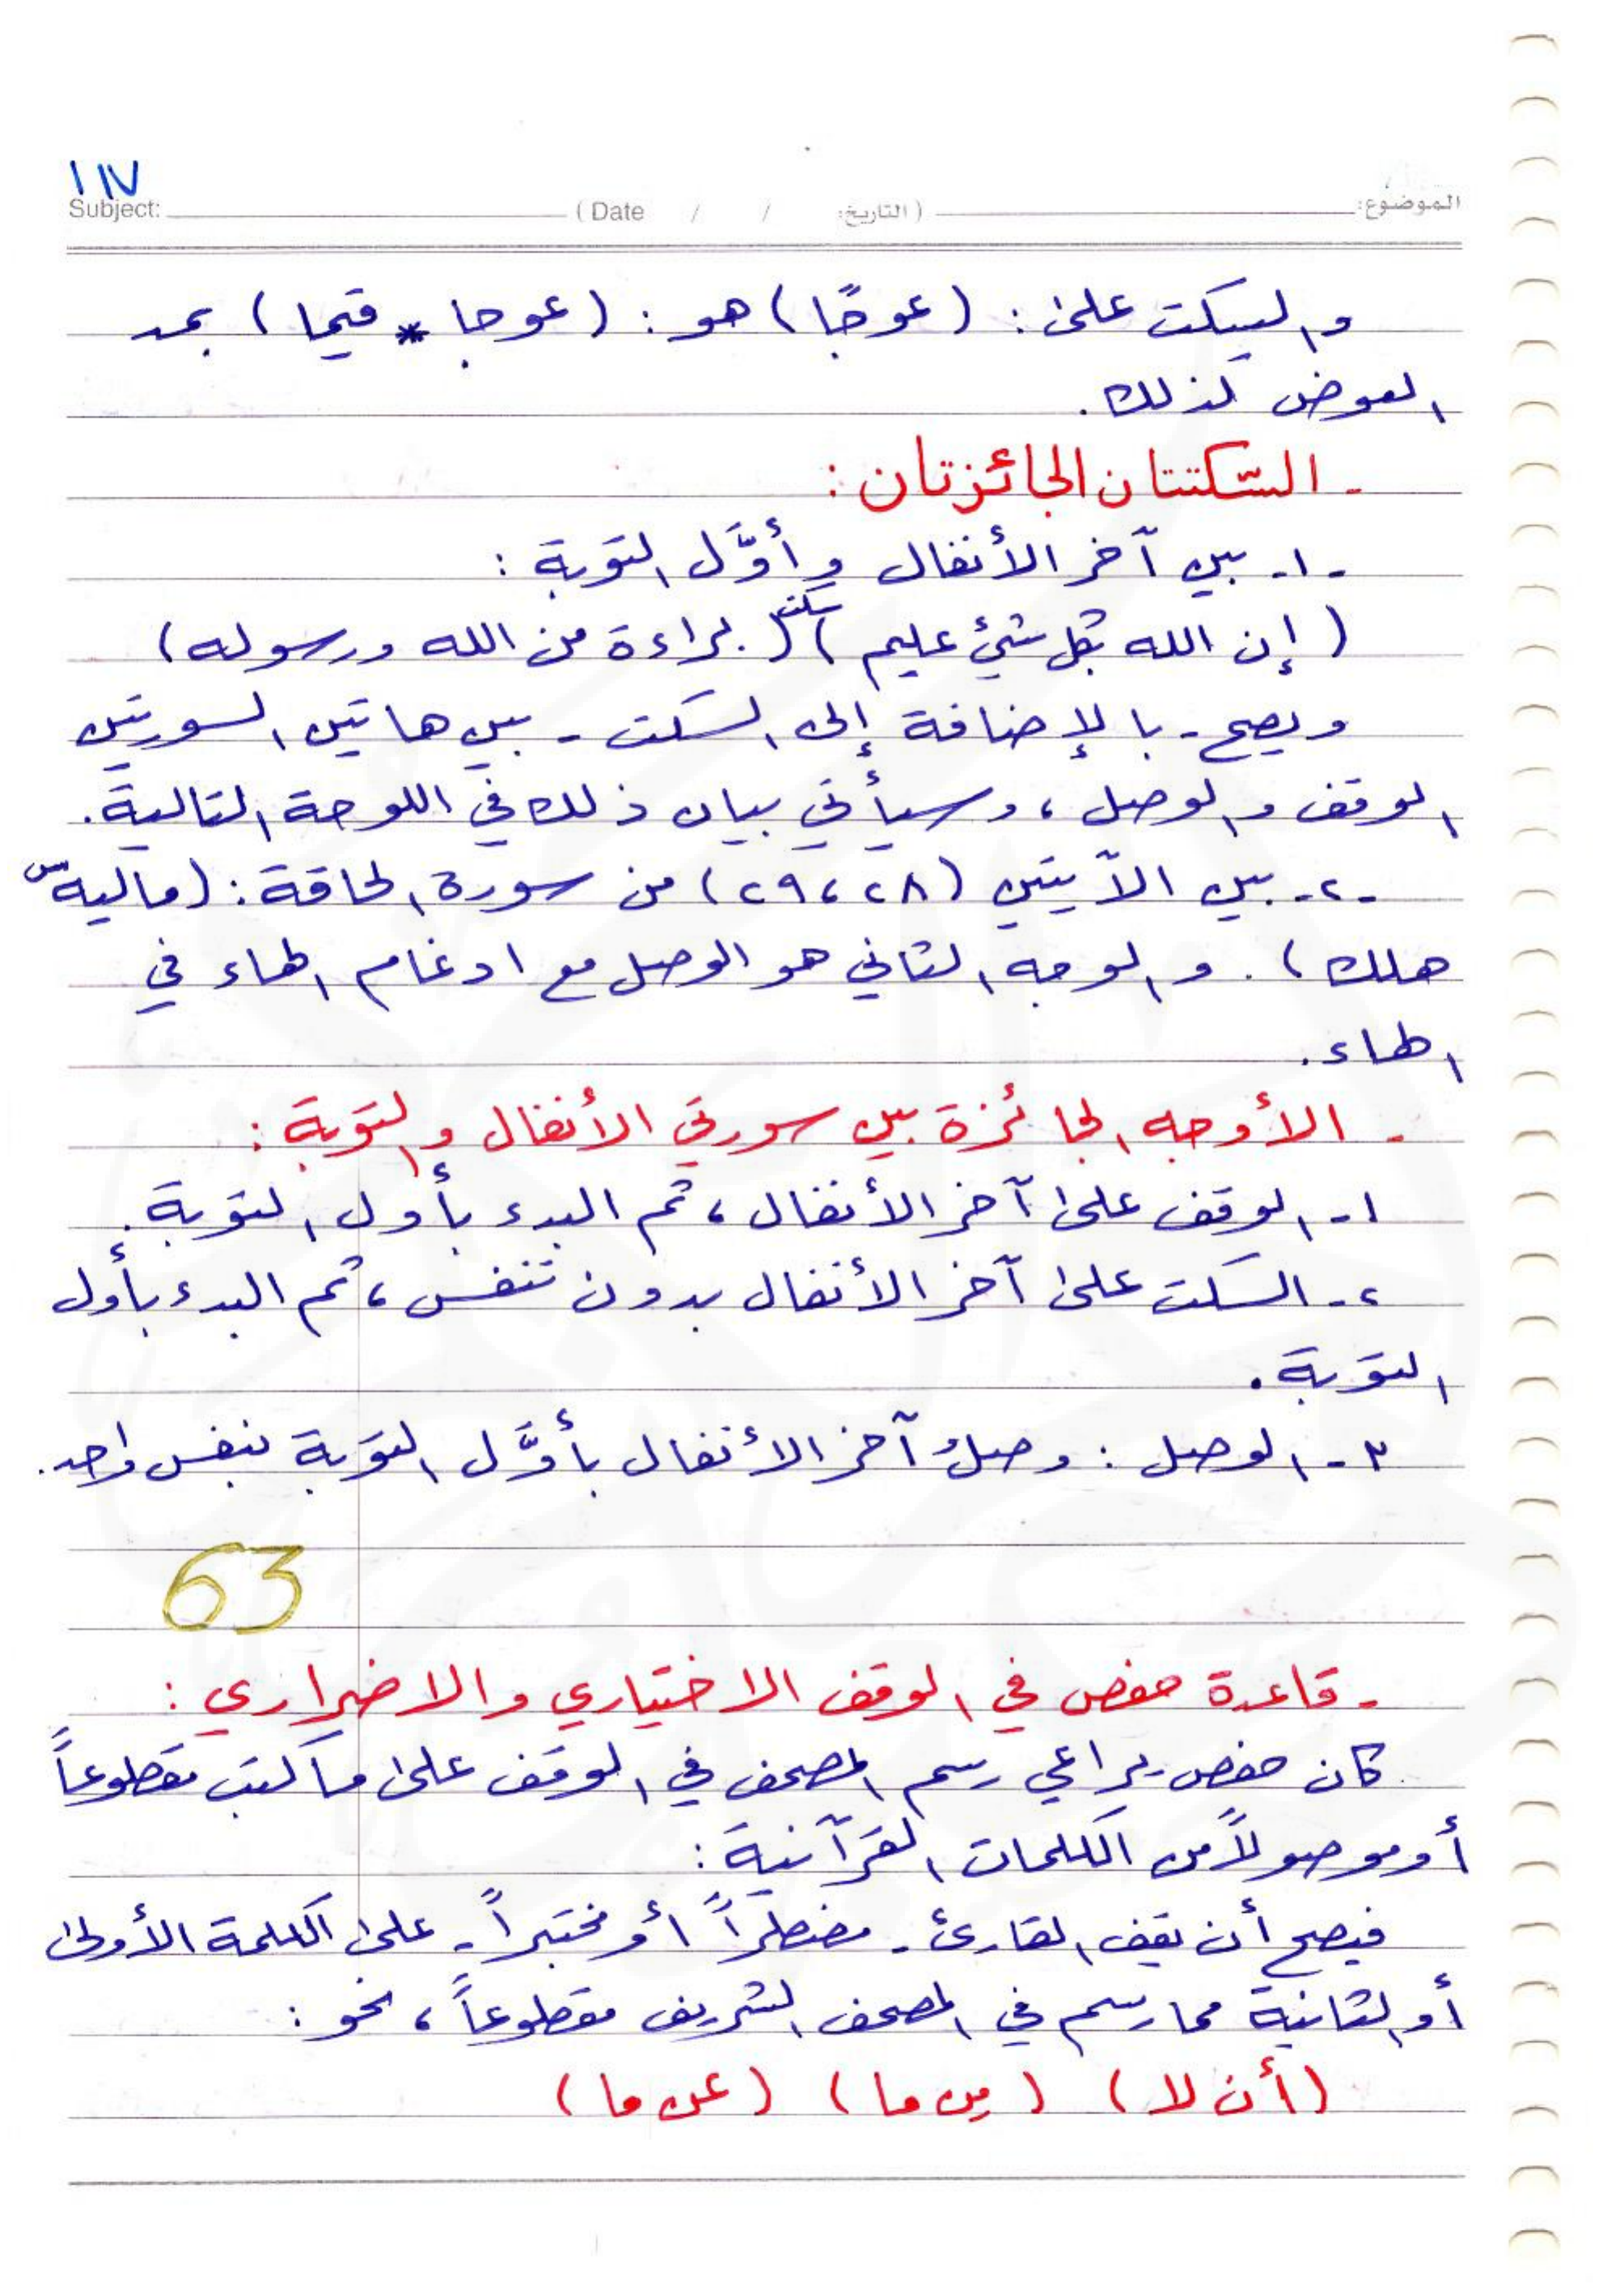 ١١٧
Subject: (Date / / التاريخ) الموضوع:
والسكت على: (عوجًا) هو: (عوجا * قيما) بمد
العوض كذلك.
- السّكتتان الجائزتان:
-١- بين آخر الأنفال وأوَّل التوبة:
(إن الله بكل شيء عليم) سكت (براءة من الله ورسوله)
ويصح - بالإضافة إلى السكت - بين هاتين السورتين
الوقف والوصل، وسيأتي بيان ذلك في اللوحة التالية.
-٢- بين الآيتين (٢٨، ٢٩) من سورة الحاقة: (ماليه س
هلك). والوجه الثاني هو الوصل مع ادغام الهاء في
الهاء.
- الأوجه الجائزة بين سورتي الأنفال والتوبة:
١- الوقف على آخر الأنفال، ثم البدء بأول التوبة.
٢- السكت على آخر الأنفال بدون تنفس، ثم البدء بأول
التوبة.
٣- الوصل: وصلُ آخر الأنفال بأوَّل التوبة بنفس واحد.
63
- قاعدة حفص في الوقف الاختياري والاضراري:
كان حفص يراعي رسم المصحف في الوقف على ما كتب مقطوعاً
أو موصولاً من الكلمات القرآنية:
فيصح أن يقف القارئ - مضطراً أو مختبراً - على الكلمة الأولى
أو الثانية مما رسم في المصحف الشريف مقطوعاً، نحو:
(أن لا) (من ما) (عن ما)